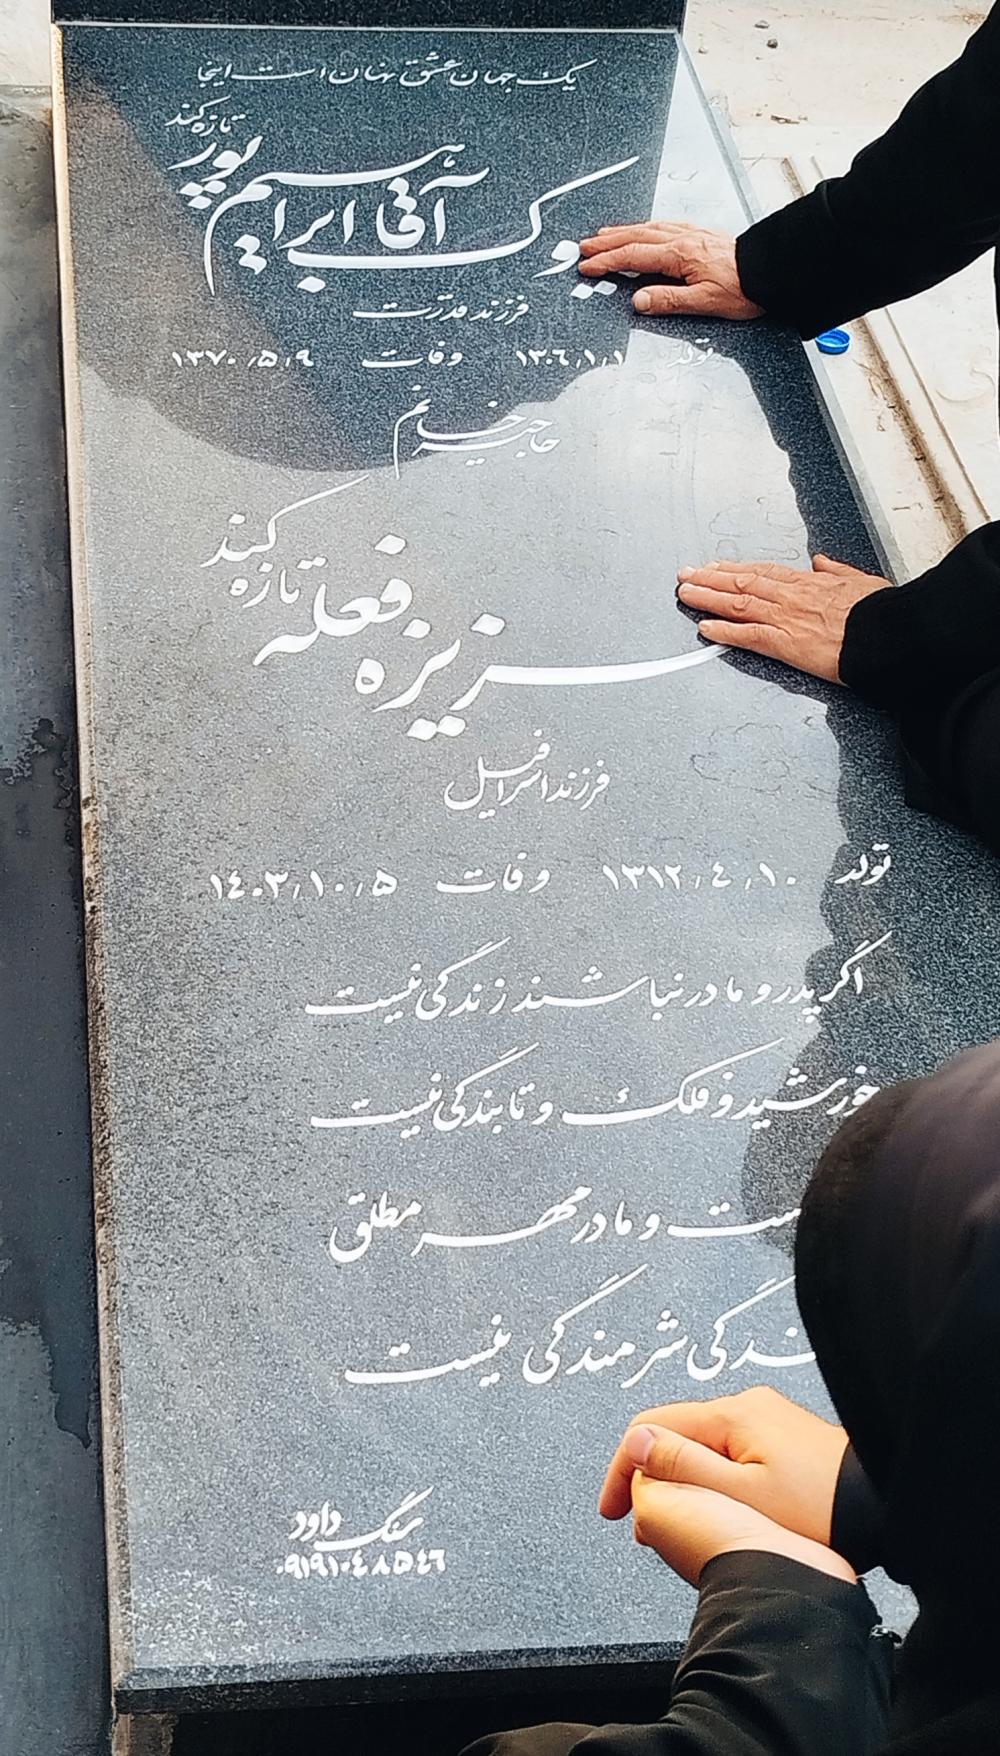 یک جهان عشق نهان است اینجا
یوک آقا ابراهیم پور
تازه کند
فرزند قدرت
تولد ۱۳۰٦/۱/۱ وفات ۱۳۷۰/۵/۹
خانم
فعله
تازه کند
فرزند اسرافیل
تولد ۱۳۱۲/٤/۱۰ وفات ۱٤۰۳/۱۰/۵
اگر پدر و مادر نباشند زندگی نیست
خورشید و فلک و تابندگی نیست
ست و مادر مهر مطلق
ندگی شرمندگی نیست
سنگ داود
۰۹۱۹۱۰٤۸۵٤٦